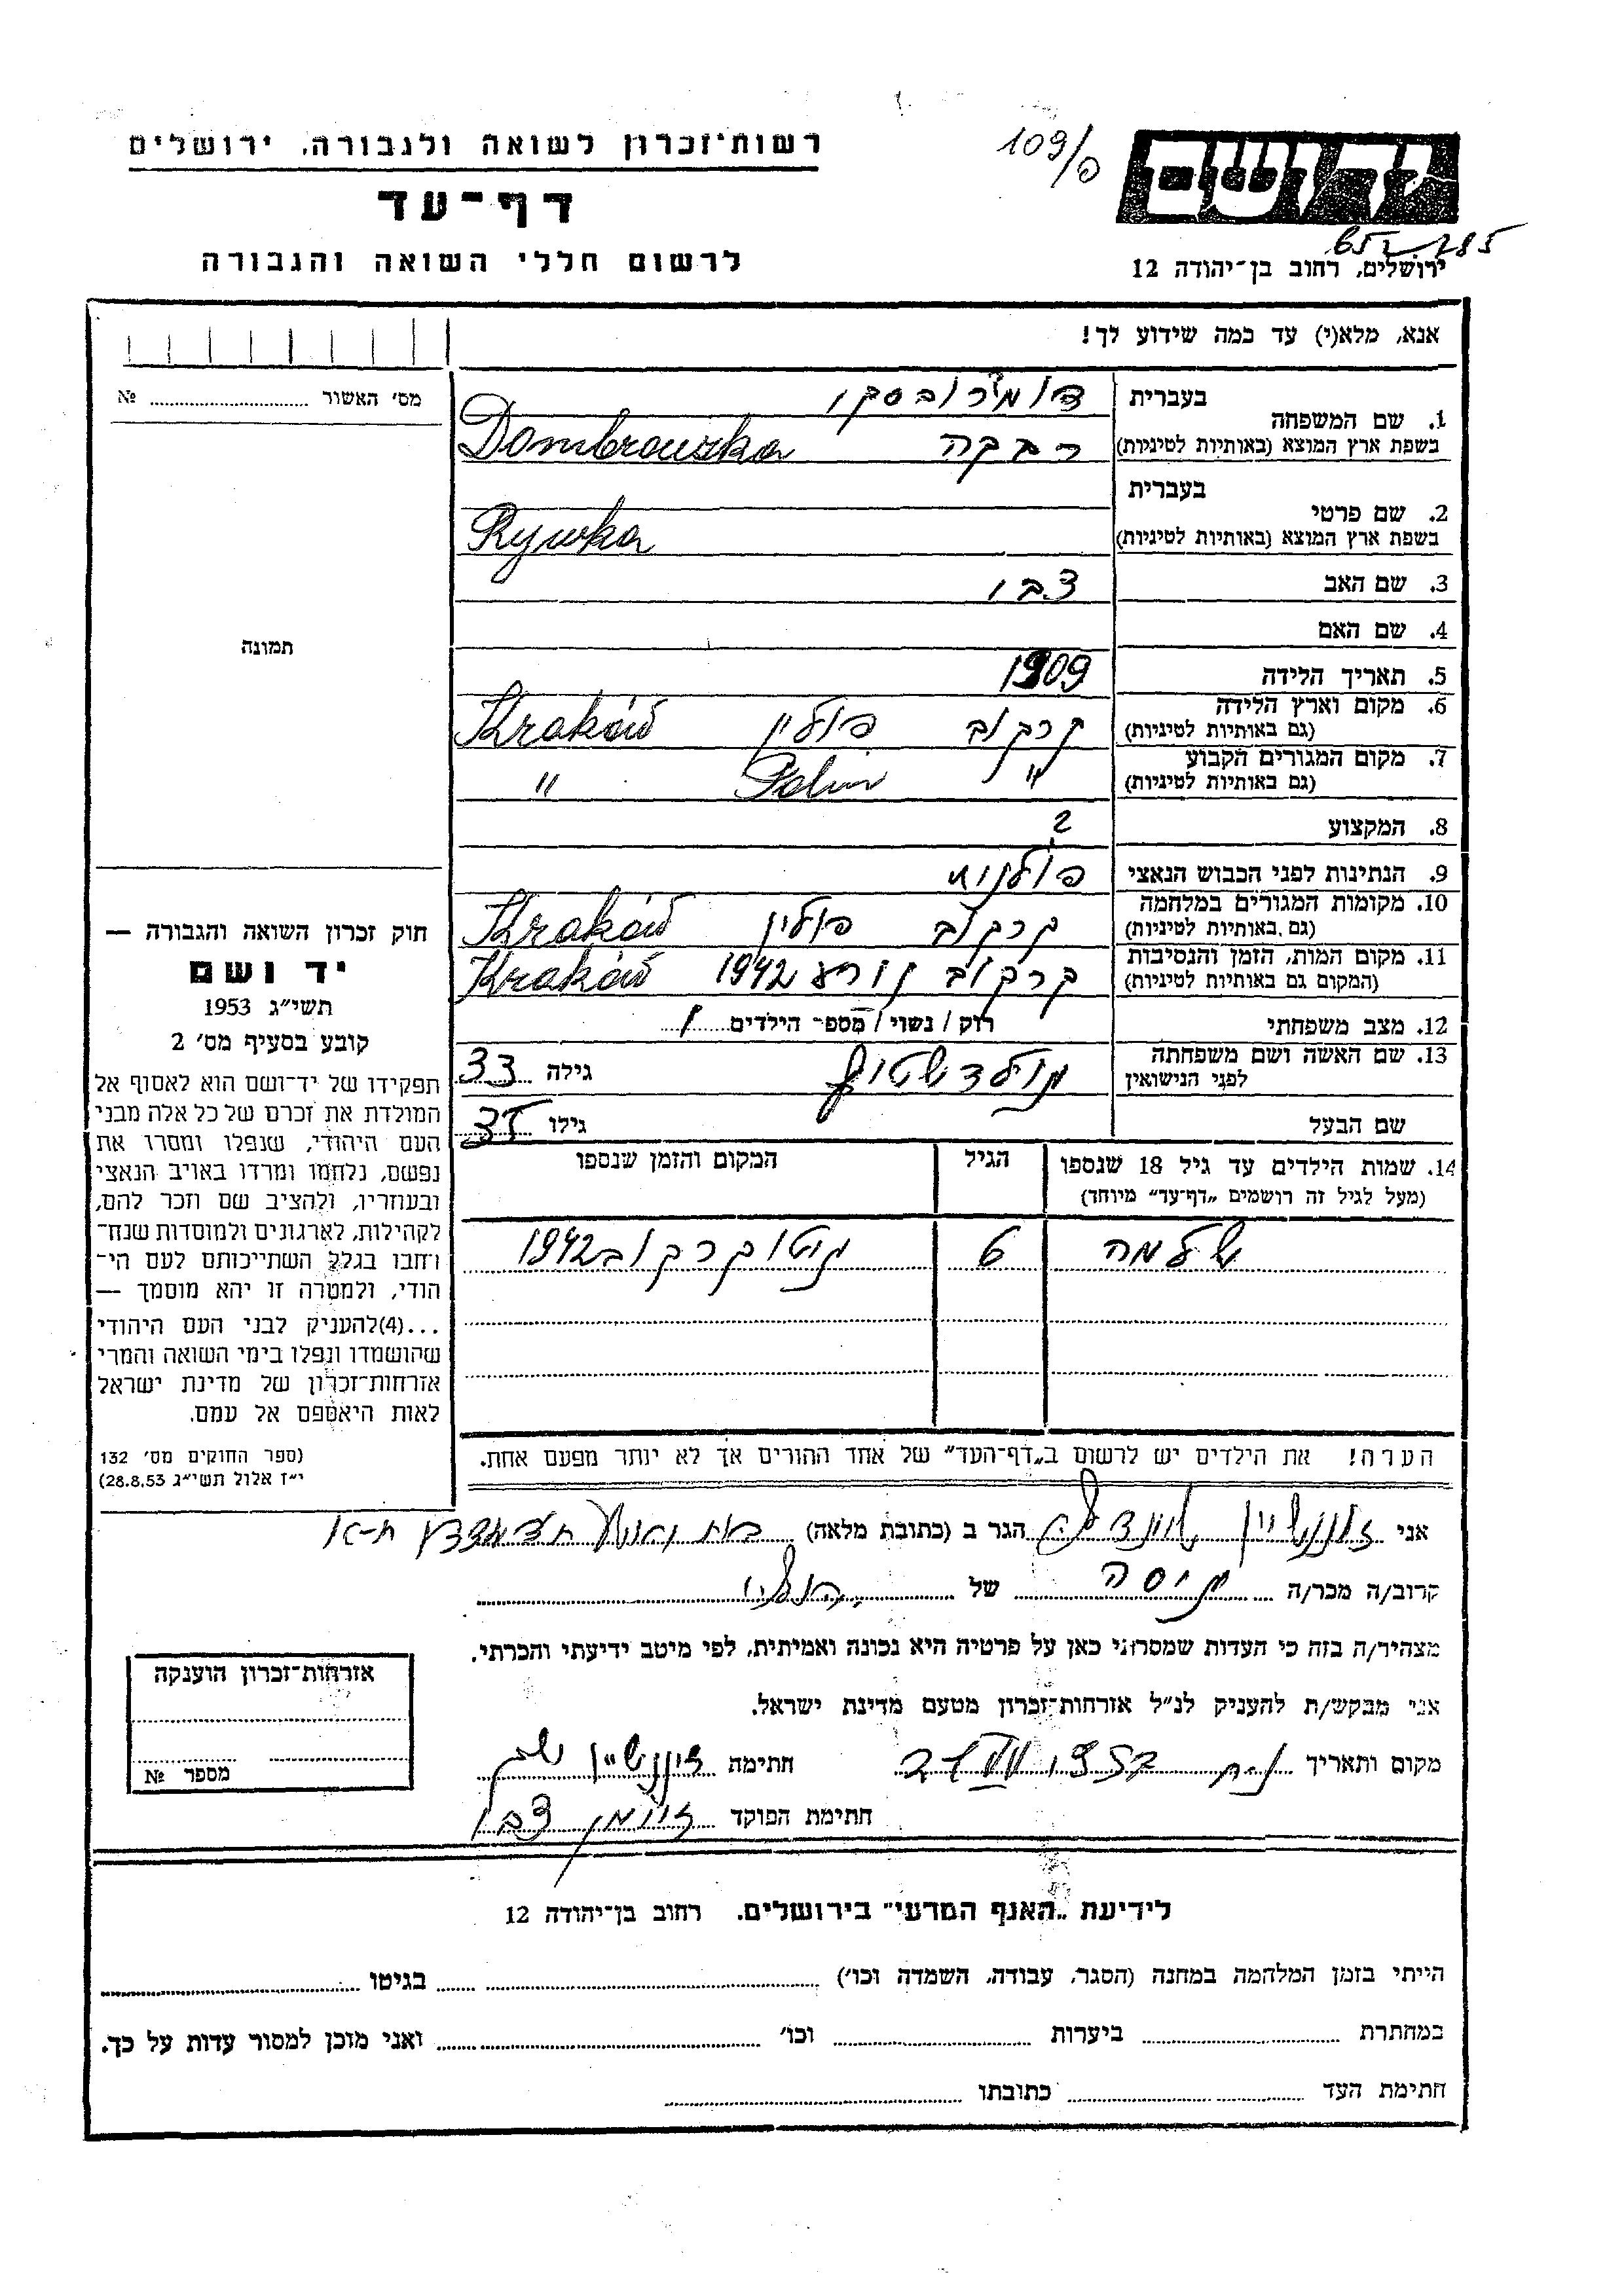 רשות־זכרון לשואה ולגבורה, ירושלים
דף־עד
לרשום חללי השואה והגבורה
109/פ
יד ושם
ירושלים, רחוב בן־יהודה 12
אנא, מלא(י) עד כמה שידוע לך!
מס׳ האשור № 
1. שם המשפחה
בעברית
בשפת ארץ המוצא (באותיות לטיניות)
רבקה Dombrowska
2. שם פרטי
בעברית
בשפת ארץ המוצא (באותיות לטיניות)
Rywka
3. שם האב
צבי
4. שם האם
5. תאריך הלידה
1909
6. מקום וארץ הלידה
(גם באותיות לטיניות)
קרקוב פולין Kraków
7. מקום המגורים הקבוע
(גם באותיות לטיניות)
" "
8. המקצוע
9. הנתינות לפני הכבוש הנאצי
10. מקומות המגורים במלחמה
(גם באותיות לטיניות)
קרקוב פולין Kraków
11. מקום המות, הזמן והנסיבות
(המקום גם באותיות לטיניות)
קרקוב 1942 Kraków
12. מצב משפחתי
רוק / נשוי / מספר הילדים 1
13. שם האשה ושם משפחתה
לפני הנישואין
גילה 33
שם הבעל
גילו 35
14. שמות הילדים עד גיל 18 שנספו
(מעל לגיל זה רושמים „דף־עד״ מיוחד)
הגיל
המקום והזמן שנספו
שלמה 6 קרקוב 1942
הערה! את הילדים יש לרשום ב„דף־העד״ של אחד ההורים אך לא יותר מפעם אחת.
תמונה
חוק זכרון השואה והגבורה —
יד ושם
תשי״ג 1953
קובע בסעיף מס׳ 2
תפקידו של יד־ושם הוא לאסוף אל
המולדת את זכרם של כל אלה מבני
העם היהודי, שנפלו ומסרו את
נפשם, נלחמו ומרדו באויב הנאצי
ובעוזריו, ולהציב שם וזכר להם,
לקהילות, לארגונים ולמוסדות שנח־
רחבו בגלל השתייכותם לעם הי־
הודי, ולמטרה זו יהא מוסמך —
...(4)להעניק לבני העם היהודי
שהושמדו ונפלו בימי השואה והמרי
אזרחות־זכרון של מדינת ישראל
לאות היאספם אל עמם.
(ספר החוקים מס׳ 132
י״ז אלול תשי״ג 28.8.53)
אני הגר ב (כתובת מלאה)
קרוב/ה מכר/ה גיסה של
מצהיר/ה בזה כי העדות שמסרתי כאן על פרטיה היא נכונה ואמיתית, לפי מיטב ידיעתי והכרתי.
אני מבקש/ת להעניק לנ״ל אזרחות־זכרון מטעם מדינת ישראל.
מקום ותאריך חתימה
חתימת הפוקד צבי
אזרחות־זכרון הוענקה
מספר №
לידיעת „האגף המדעי״ בירושלים. רחוב בן־יהודה 12
הייתי בזמן המלחמה במחנה (הסגר, עבודה, השמדה וכו׳) בגיטו
במחתרת ביערות וכו׳ ואני מוכן למסור עדות על כך.
חתימת העד כתובתו